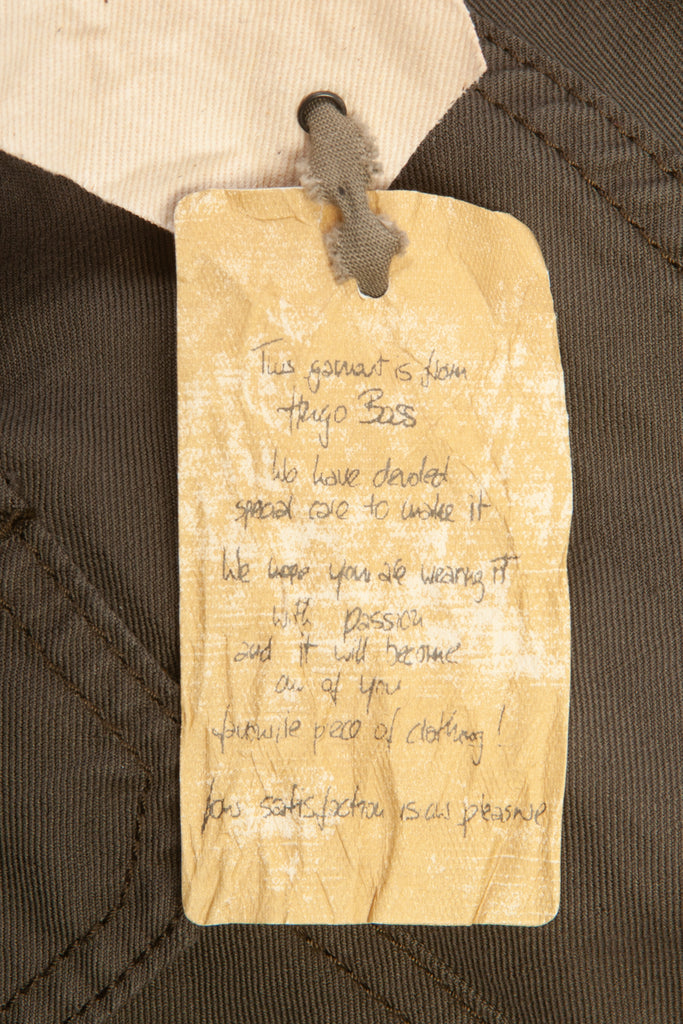 This garment is from
Hugo Boss
We have devoted
special care to make it
We hope you are wearing it
with passion
and it will become
on of you
favourite piece of clothing!
Your satisfaction is our pleasure